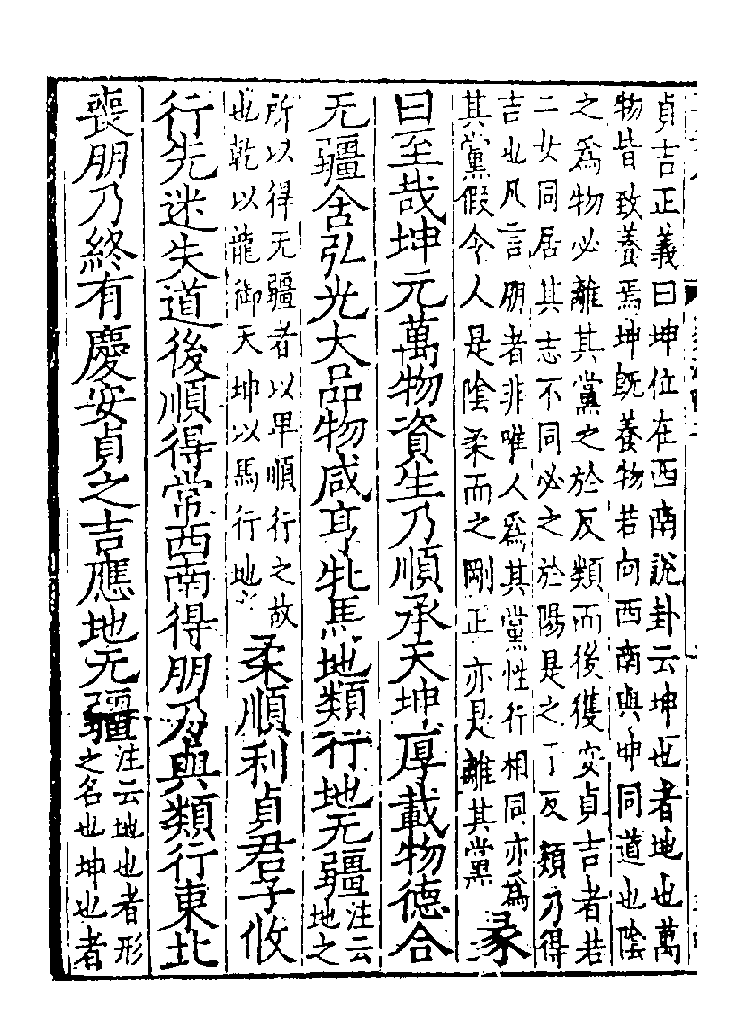 貞吉正義曰坤位在西南說卦云坤也者地也萬
物皆致養焉坤既養物若向西南與坤同道也陰
之為物必離其黨之於反類而後獲安貞吉者若
二女同居其志不同必之於陽是之于反類乃得
吉也凡言朋者非唯人為其黨性行相同亦為
其黨假令人是陰柔而之剛正亦是離其黨
彖
曰至哉坤元萬物資生乃順承天坤厚載物德合
无疆含弘光大品物咸亨牝馬地類行地无疆
注云
地之
所以得无疆者以卑順行之故
也乾以龍御天坤以馬行地
柔順利貞君子攸
行先迷失道後順得常西南得朋乃與類行東北
喪朋乃終有慶安貞之吉應地无疆
注云地也者形
之名也坤也者